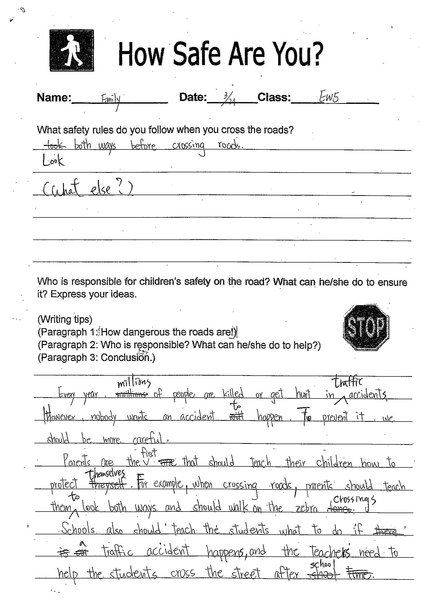 How Safe Are You?
Name: Emily Date: 3/4 Class: EW5
What safety rules do you follow when you cross the roads?
took both ways before crossing roads.
Look
(What else?)
Who is responsible for children's safety on the road? What can he/she do to ensure
it? Express your ideas.
(Writing tips)
(Paragraph 1: How dangerous the roads are!)
(Paragraph 2: Who is responsible? What can he/she do to help?)
(Paragraph 3: Conclusion.)
STOP
millions traffic
Every year, of people are killed or get hurt in accidents.
to
However, nobody wants an accident happen. To prevent it, we
should be more careful.
first
Parents are the that should teach their children how to
themselves
protect theyself. For example, when crossing roads, parents should teach
to crossings
them look both ways and should walk on the zebra
Schools also should teach the students what to do if there
is a traffic accident happens, and the teachers need to
school
help the students cross the street after school time.